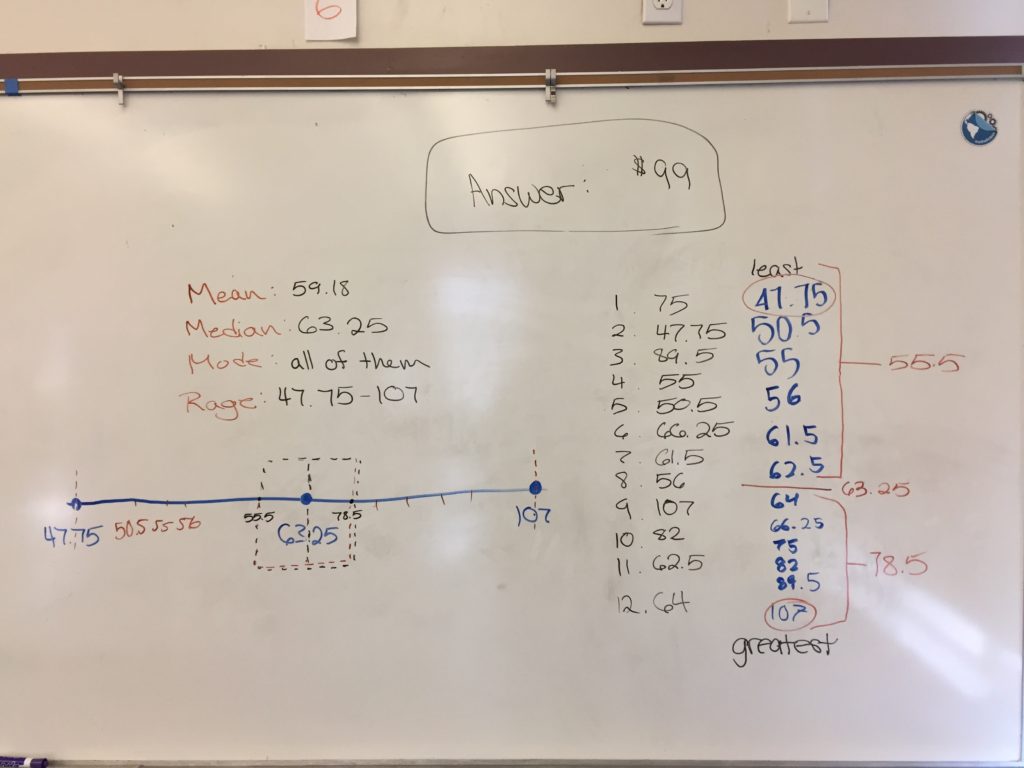 6
Answer: $99
Mean: 59.18
Median: 63.25
Mode: all of them
Rage: 47.75-107
1. 75
2. 47.75
3. 89.5
4. 55
5. 50.5
6. 66.25
7. 61.5
8. 56
9. 107
10. 82
11. 62.5
12. 64
least
47.75
50.5
55
56
61.5
62.5
64
66.25
75
82
89.5
107
greatest
55.5
63.25
78.5
47.75
50.5 55 56
55.5
63.25
78.5
107